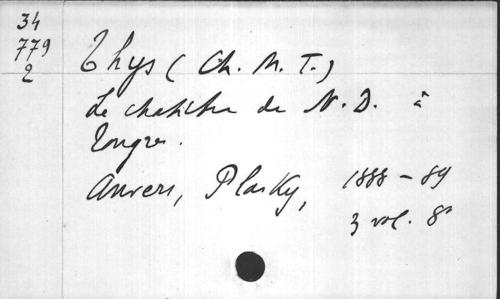 34
779
2
Thys (Ch. M. T.)
Le chapitre de N. D. à
Tongres.
Anvers, Plasky, 1888-89
3 vol. 8º